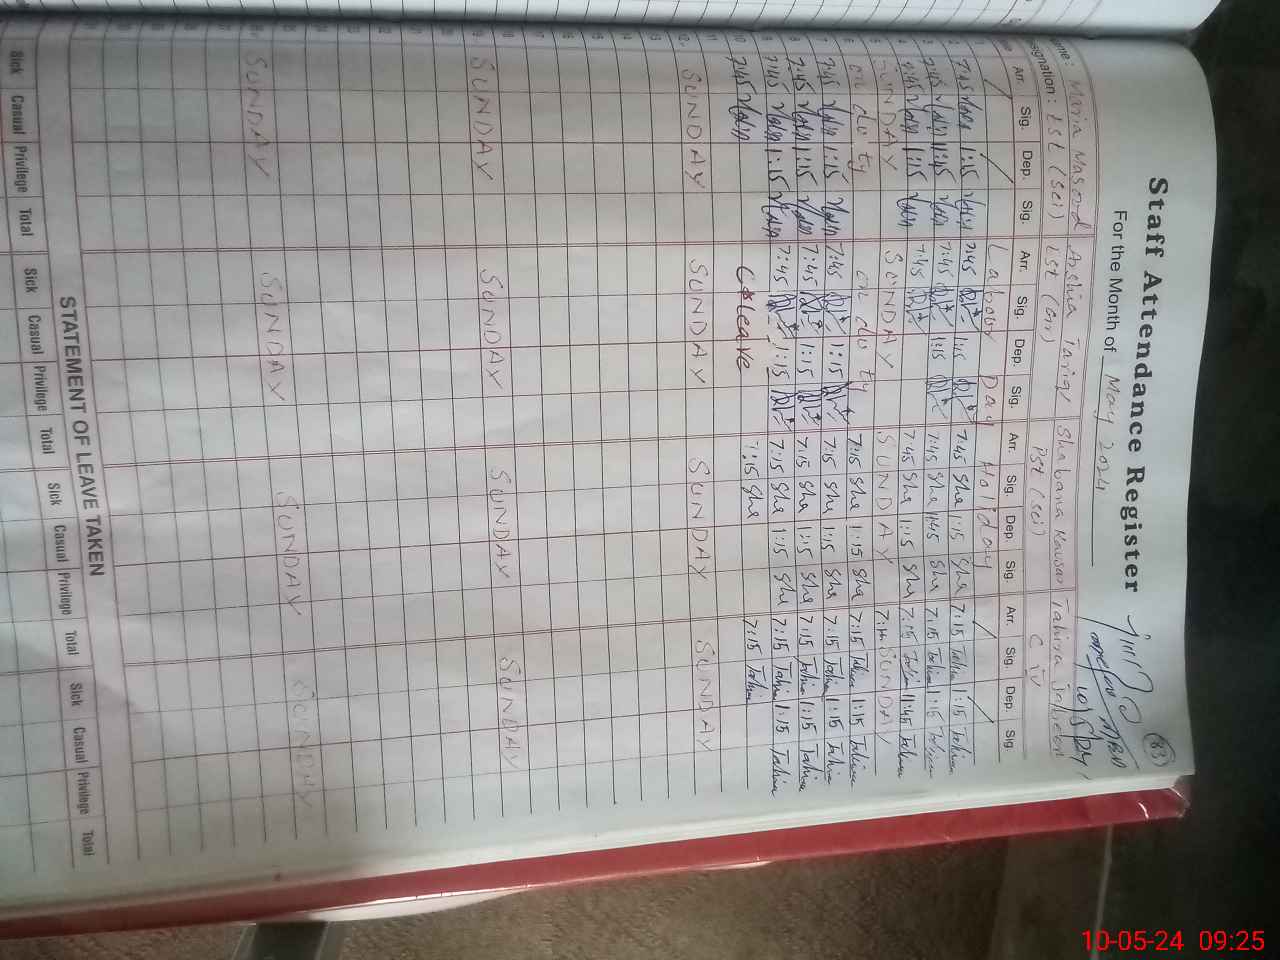 Staff Attendance Register
For the Month of May 2024
83
10/5/24
Name: Maria Masood Arshia Tariq Shabana Kausar Tahira Jabeen
Designation: EST (Sci) EST (Gn) PST (Sci) C IV
Arr. Sig. Dep. Sig. Arr. Sig. Dep. Sig. Arr. Sig. Dep. Sig. Arr. Sig. Dep. Sig.
Labour Day Holiday
2 7:45 1:15 7:45 1:45 7:45 Sha 1:15 Sha 7:15 Tahira 1:15 Tahira
3 7:45 1:45 7:45 1:15 7:45 Sha 1:45 Sha 7:15 Tahira 1:15 Tahira
4 7:45 1:15 7:45 7:45 Sha 1:15 Sha 7:15 Tahira 1:45 Tahira
5 SUNDAY SUNDAY SUNDAY SUNDAY
6 on duty on duty 7:15 Sha 1:15 Sha 7:15 Tahira 1:15 Tahira
7 7:45 1:15 7:45 1:15 7:15 Sha 1:15 Sha 7:15 Tahira 1:15 Tahira
8 7:45 1:15 7:45 1:15 7:15 Sha 1:15 Sha 7:15 Tahira 1:15 Tahira
9 7:45 1:15 7:45 1:15 7:15 Sha 1:15 Sha 7:15 Tahira 1:15 Tahira
10 7:45 Leave 7:15 Sha 7:15 Tahira
11
12 SUNDAY SUNDAY SUNDAY SUNDAY
13
14
15
16
17
18
19 SUNDAY SUNDAY SUNDAY SUNDAY
20
21
22
23
24
25
26 SUNDAY SUNDAY SUNDAY SUNDAY
STATEMENT OF LEAVE TAKEN
Sick Casual Privilege Total Sick Casual Privilege Total Sick Casual Privilege Total Sick Casual Privilege Total
10-05-24 09:25